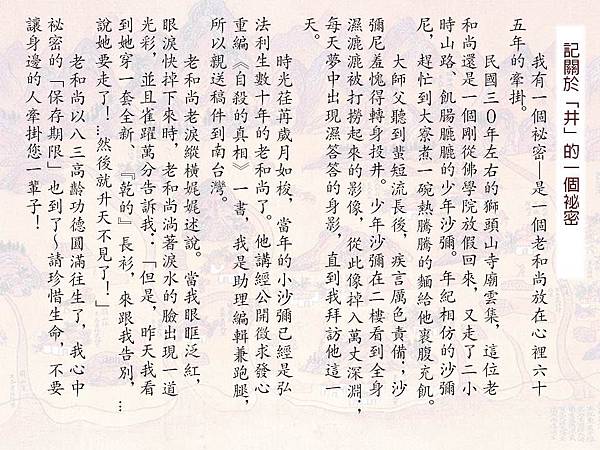 記關於「井」的一個祕密
我有一個祕密─是一個老和尚放在心裡六十
五年的牽掛。
民國三０年左右的獅頭山寺廟雲集，這位老
和尚還是一個剛從佛學院放假回來，又走了二小
時山路、飢腸聽聽的少年沙彌。年紀相仿的沙彌
尼，趕忙到大寮煮一碗熱騰騰的麵給他裹腹充飢。
大師父聽到蜚短流長後，疾言厲色責備；沙
彌尼羞愧得轉身投井。少年沙彌在二樓看到全身
濕漉漉被打撈起來的影像，從此像掉入萬丈深淵；
每天夢中出現濕答答的身影，直到我拜訪他這一
天。
時光荏苒歲月如梭，當年的小沙彌已經是弘
法利生數十年的老和尚了。他講經公開徵求發心
重編《自殺的真相》一書，我是助理編輯兼跑腿，
所以親送稿件到南台灣。
老和尚老淚縱橫娓娓述說。當我眼眶泛紅，
眼淚快掉下來時，老和尚淌著淚水的臉出現一道
光彩，並且雀躍萬分告訴我：「但是，昨天我看
到她穿一套全新、『乾的』長衫，來跟我告別，…
說她要走了！…然後就升天不見了！」
老和尚以八三高齡功德圓滿往生了，我心中
祕密的「保存期限」也到了～請珍惜生命，不要
讓身邊的人牽掛您一輩子！